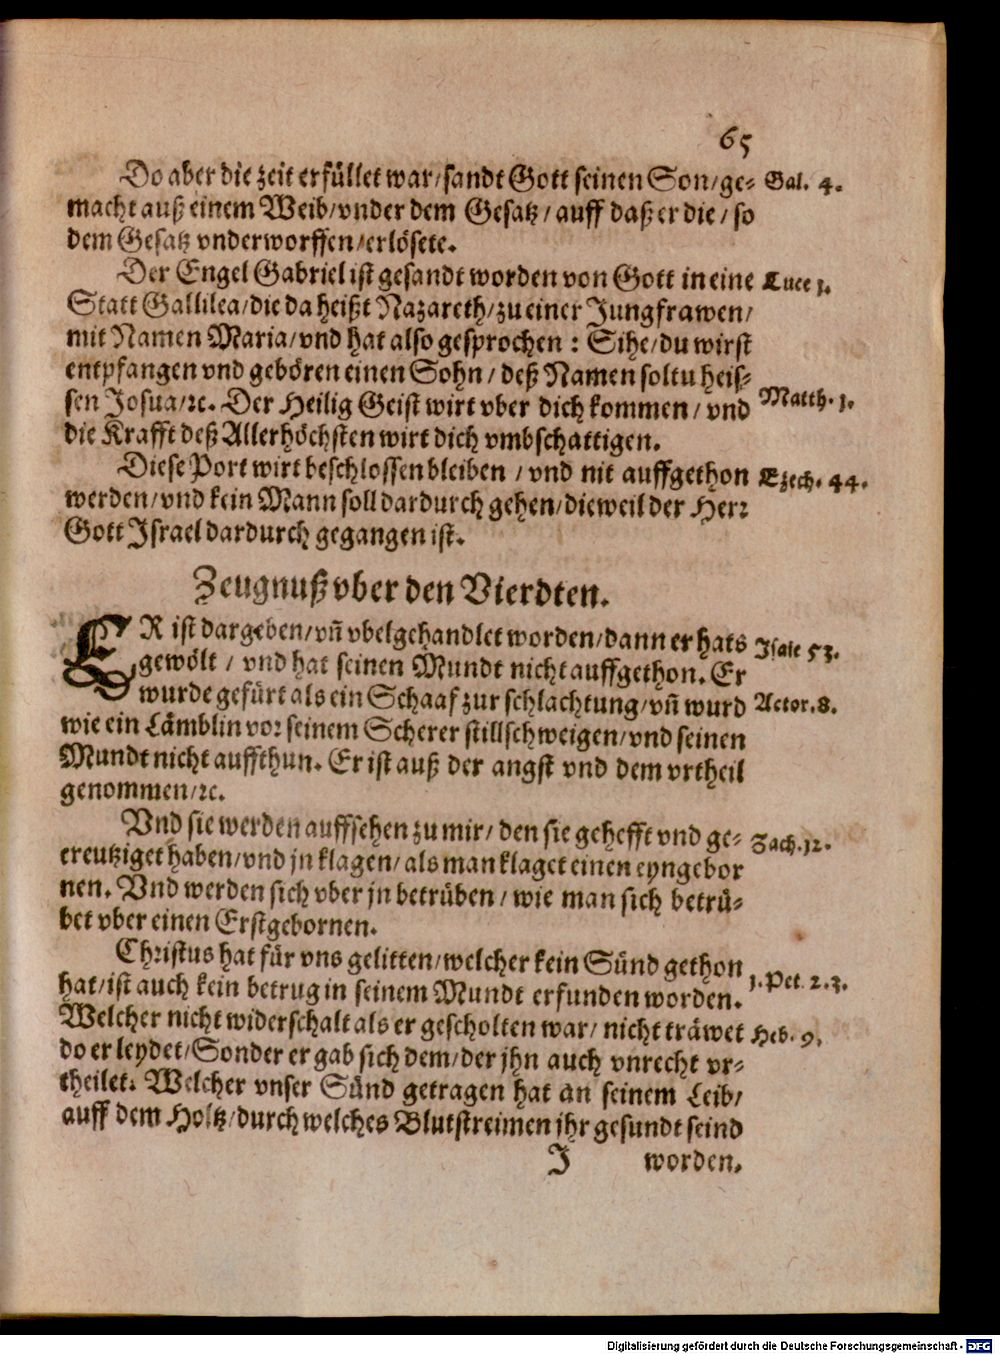 65
Do aber die zeit erfüllet war/sandt Gott seinen Son/ge= Gal. 4.
macht auß einem Weib/vnder dem Gesatz/auff daß er die/so
dem Gesatz vnderworffen/erlösete.
Der Engel Gabriel ist gesandt worden von Gott in eine Luce 1.
Statt Gallilea/die da heißt Nazareth/zu einer Jungfrawen/
mit Namen Maria/vnd hat also gesprochen: Sihe/du wirst
entpfangen vnd gebören einen Sohn/deß Namen soltu heis=
sen Josua/ꝛc. Der Heilig Geist wirt vber dich kommen/vnd Matth. 1.
die Krafft deß Allerhöchsten wirt dich vmbschattigen.
Diese Port wirt beschlossen bleiben/vnd nit auffgethon Ezech. 44.
werden/vnd kein Mann soll dardurch gehen/dieweil der Herr
Gott Israel dardurch gegangen ist.
Zeugnuß vber den Vierdten.
ER ist dargeben/vñ vbelgehandlet worden/dann er hats Isaie 53.
gewölt/vnd hat seinen Mundt nicht auffgethon. Er
wurde gefürt als ein Schaaf zur schlachtung/vñ wurd Actor. 8.
wie ein Lämblin vor seinem Scherer stillschweigen/vnd seinen
Mundt nicht auffthun. Er ist auß der angst vnd dem vrtheil
genommen/ꝛc.
Vnd sie werden auffsehen zu mir/den sie gehefft vnd ge= Zach. 12.
creutziget haben/vnd jn klagen/als man klaget einen eyngebor
nen. Vnd werden sich vber jn betrüben/wie man sich betrü=
bet vber einen Erstgebornen.
Christus hat für vns gelitten/welcher kein Sünd gethon
hat/ist auch kein betrug in seinem Mundt erfunden worden. 1. Pet. 2. 3.
Welcher nicht widerschalt als er gescholten war/nicht träwet Heb. 9.
do er leydet/Sonder er gab sich dem/der jhn auch vnrecht vr=
theilet. Welcher vnser Sünd getragen hat an seinem Leib/
auff dem Holtz/durch welches Blutstreimen jhr gesundt seind
J worden.
Digitalisierung gefördert durch die Deutsche Forschungsgemeinschaft - DFG